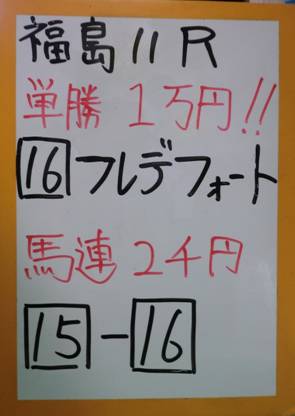 福島11R
単勝 1万円!!
16フレデフォート
馬連 2千円
15-16